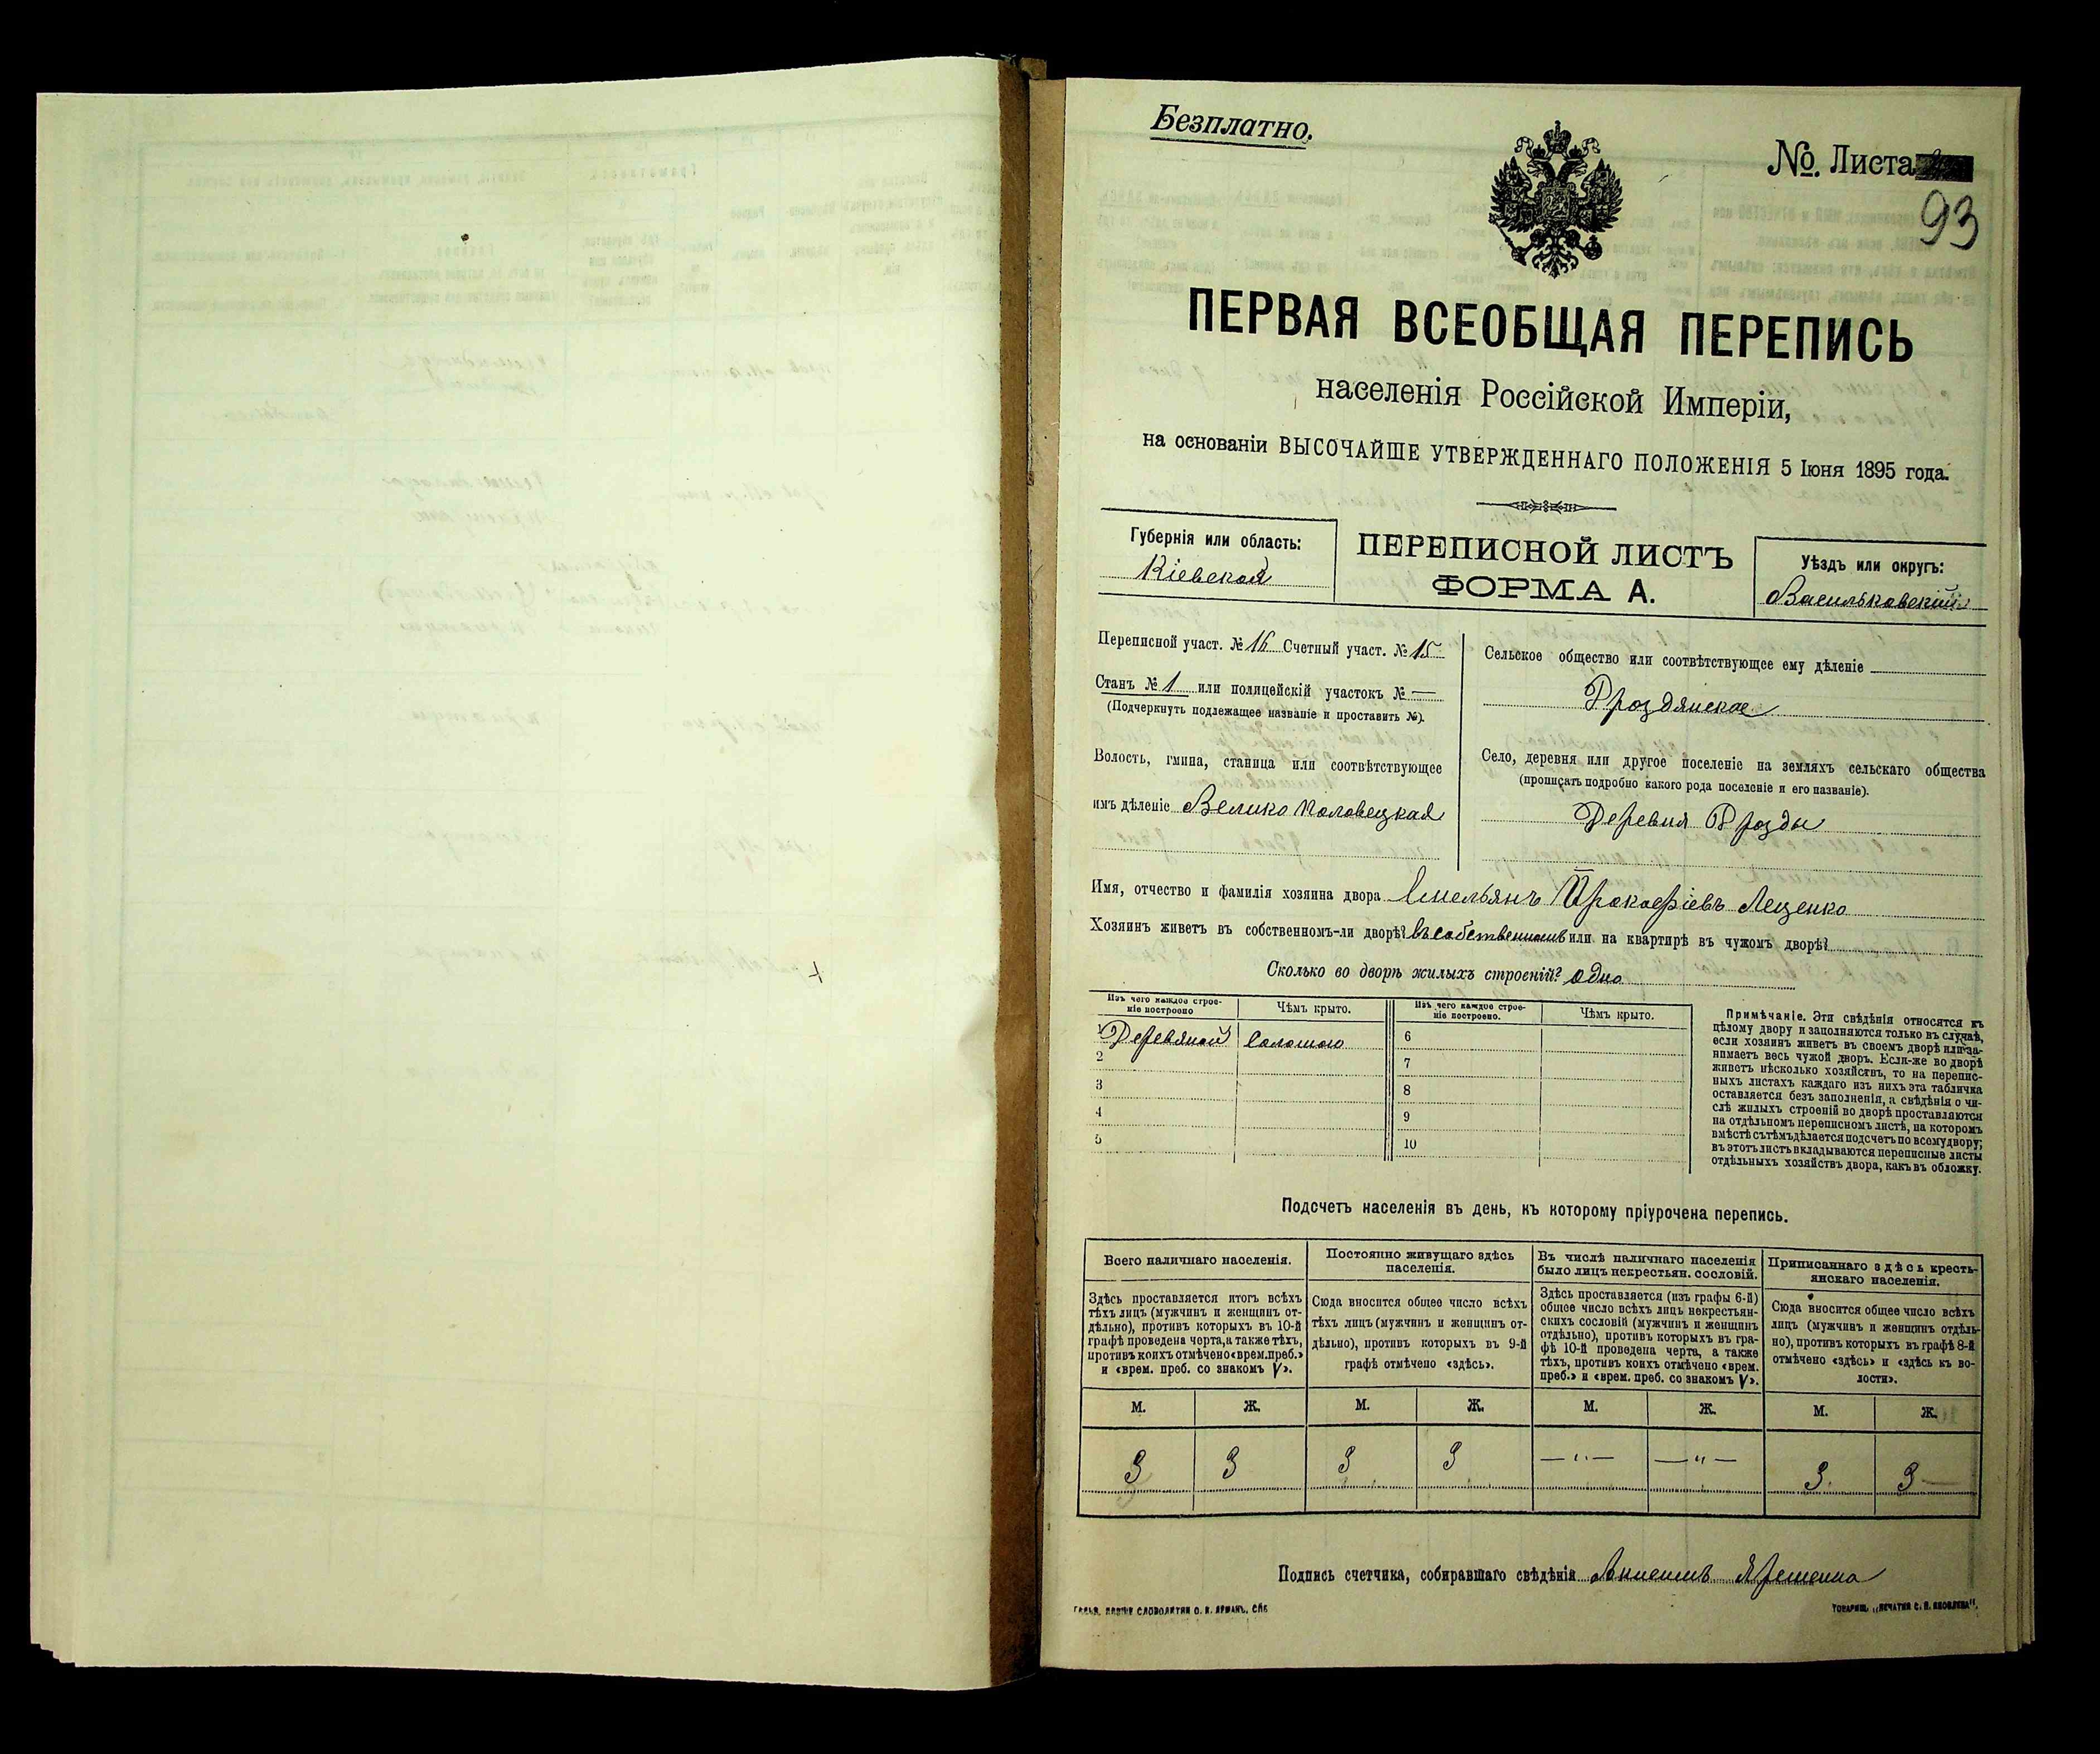 Безплатно.
№. Листа
93
ПЕРВАЯ ВСЕОБЩАЯ ПЕРЕПИСЬ
населенія Россійской Имперіи,
на основаніи ВЫСОЧАЙШЕ УТВЕРЖДЕННАГО ПОЛОЖЕНІЯ 5 Іюня 1895 года.
Губернія или область:
Кіевская
ПЕРЕПИСНОЙ ЛИСТЪ
ФОРМА А.
Уѣздъ или округъ:
Васильковскій
Переписной участ. № 16 Счетный участ. № 15
Станъ № 1 или полицейскій участокъ № —
(Подчеркнуть подлежащее названіе и проставить №).
Волость, гмина, станица или соотвѣтствующее
имъ дѣленіе Велико Половецкая
Сельское общество или соотвѣтствующее ему дѣленіе
Дроздянское
Село, деревня или другое поселеніе на земляхъ сельскаго общества
(прописать подробно какого рода поселеніе и его названіе).
Деревня Дрозды
Имя, отчество и фамилія хозяина двора Емельянъ Прокофіевъ Лещенко
Хозяинъ живетъ въ собственномъ-ли дворѣ? въ собственномъ или на квартирѣ въ чужомъ дворѣ?
Сколько во дворѣ жилыхъ строеній? одно
Изъ чего каждое строе-
ніе построено
Чѣмъ крыто.
Изъ чего каждое строе-
ніе построено.
Чѣмъ крыто.
1 Деревяной Соломою
2
3
4
5
6
7
8
9
10
Примѣчаніе. Эти свѣдѣнія относятся къ
цѣлому двору и заполняются только въ случаѣ,
если хозяинъ живетъ въ своемъ дворѣ или за-
нимаетъ весь чужой дворъ. Если-же во дворѣ
живетъ нѣсколько хозяйствъ, то на перепис-
ныхъ листахъ каждаго изъ нихъ эта табличка
оставляется безъ заполненія, а свѣдѣнія о чи-
слѣ жилыхъ строеній во дворѣ проставляются
на отдѣльномъ переписномъ листѣ, на которомъ
вмѣстѣ съ тѣмъ дѣлается подсчетъ по всему двору;
въ этотъ листъ вкладываются переписные листы
отдѣльныхъ хозяйствъ двора, какъ въ обложку.
Подсчетъ населенія въ день, къ которому пріурочена перепись.
Всего наличнаго населенія.
Здѣсь проставляется итогъ всѣхъ
тѣхъ лицъ (мужчинъ и женщинъ от-
дѣльно), противъ которыхъ въ 10-й
графѣ проведена черта, а также тѣхъ,
противъ коихъ отмѣчено «врем. преб.»
и «врем. преб. со знакомъ V».
Постоянно живущаго здѣсь
населенія.
Сюда вносится общее число всѣхъ
тѣхъ лицъ (мужчинъ и женщинъ от-
дѣльно), противъ которыхъ въ 9-й
графѣ отмѣчено «здѣсь».
Въ числѣ наличнаго населенія
было лицъ некрестьян. сословій.
Здѣсь проставляется (изъ графы 6-й)
общее число всѣхъ лицъ некрестьян-
скихъ сословій (мужчинъ и женщинъ
отдѣльно), противъ которыхъ въ гра-
фѣ 10-й проведена черта, а также
тѣхъ, противъ коихъ отмѣчено «врем.
преб.» и «врем. преб. со знакомъ V».
Приписаннаго здѣсь кресть-
янскаго населенія.
Сюда вносится общее число всѣхъ
лицъ (мужчинъ и женщинъ отдѣль-
но), противъ которыхъ въ графѣ 8-й
отмѣчено «здѣсь» и «здѣсь къ во-
лости».
М. Ж. М. Ж. М. Ж. М. Ж.
3 3 3 3 —"— —"— 3 3
Подпись счетчика, собиравшаго свѣдѣнія
ТОВАРИЩ. „ПЕЧАТНЯ С. П. ЯКОВЛЕВА".